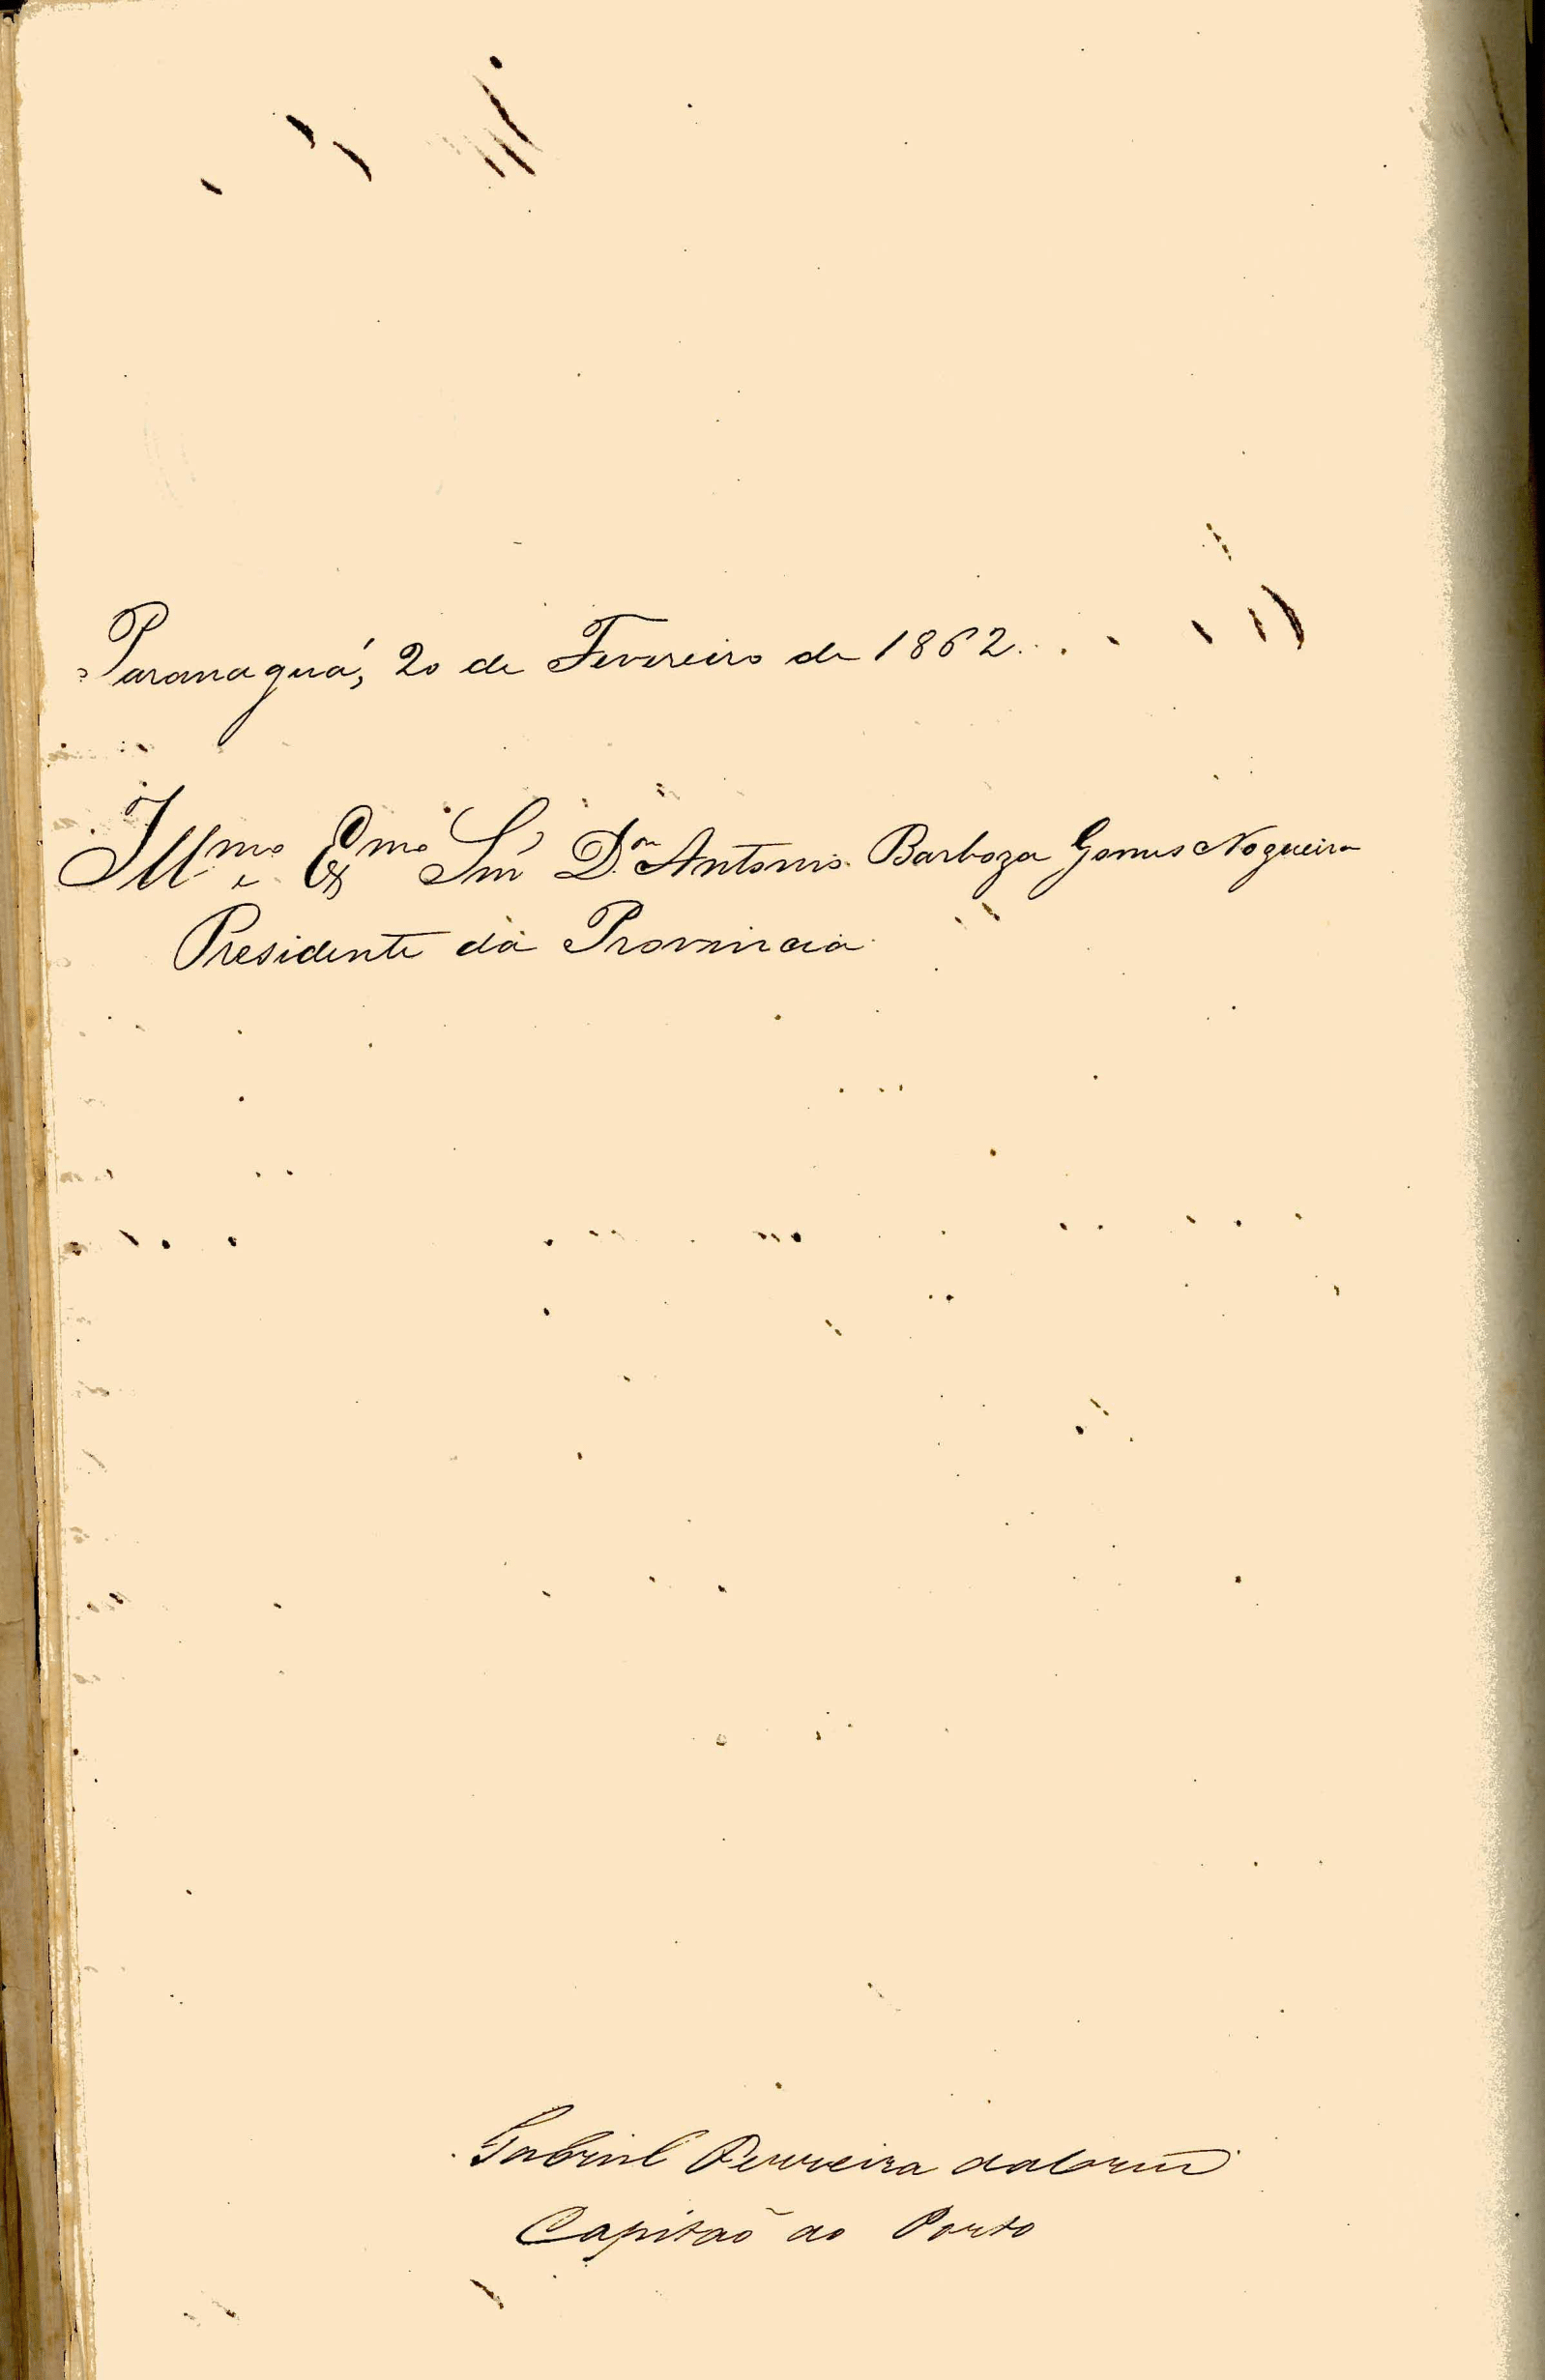 Paranaguá, 20 de Fevereiro de 1862.
Illmo e Exmo Snr Dor Antonio Barboza Gomes Nogueira
Presidente da Provincia
Gabriel Ferreira da Cruz
Capitaõ do Porto